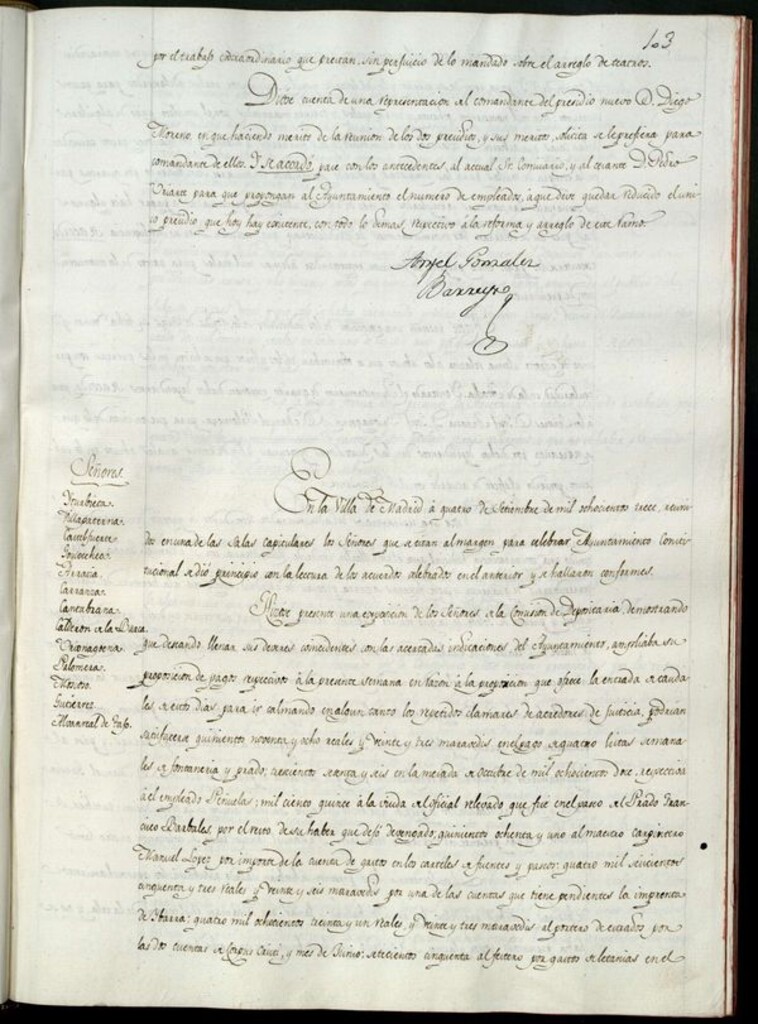 103
por el trabajo extraordinario que prestan, sin perjuicio de lo mandado sobre el arreglo de teatros.
Diose cuenta de una representacion del comandante del presidio nuevo D. Diego
Moreno, en que haciendo merito de la reunion de los dos presidios, y sus meritos, solicita se le prefiera para
comandante de ellos. Y se acordó, pase con los antecedentes, al actual Sr. Comisario, y al cesante D. Pedro
Uriarte para que propongan al Ayuntamiento el numero de empleados, á que deve quedar reducido el uni-
co presidio que hoy hay existente, con todo lo demas, respectivo á la reforma y arreglo de este Ramo.
Angel Gonzalez
Barreyro
Señores
Yruebieta
Villapaterna
Castelfuerte
Goycochea
Arracia
Carranza
Cantabrana
Calderon de la Barca
Palomera
Montoo
Gutierrez
Monreal de
En la Villa de Madrid á quatro de Setiembre de mil ochocientos trece, reuni-
dos en una de las Salas capitulares los Señores que se citan al margen para celebrar Ayuntamiento Consti-
tucional se dió principio con la lectura de los acuerdos celebrados en el anterior y se hallaron conformes.
Hizose presente una exposicion de los Señores de la Comision de Depositaria, demostrando
que deseando llenar sus deseos coincidentes con las acertadas indicaciones del Ayuntamiento, ampliaba su
proposicion de pagos respectivos á la presente semana en razon á la proporcion que ofrece la entrada de cauda-
les de estos dias para ir calmando en algun tanto los repetidos clamores de acreedores de justicia, podrian
satisfacerse quinientos noventa y ocho reales y veinte y tres maravedis en el pago de quatro listas semana-
les de fontaneria y prado; trescientos setenta y seis en la mesada de Octubre de mil ochocientos doce, respectiva
á el empleado Peñuelas; mil ciento quince á la viuda del oficial relevado que fue en el paseo del Prado Fran-
cisco Barbales por el resto de su haber que dejó devengado; quinientos ochenta y uno al maestro carpintero
Manuel Lopez por importe de la cuenta de gastos en los carteles de fuentes y paseos: quatro mil seiscientos
cinquenta y tres reales y veinte y seis maravedis por una de las cuentas que tiene pendientes la imprenta
de Ibarra: quatro mil ochocientos treinta y un reales, y veinte y tres maravedis al portero de estrados por
las dos cuentas de Corpus Cristi, y mes de Junio: setecientos cinquenta al fiestero por gastos de letanias en el